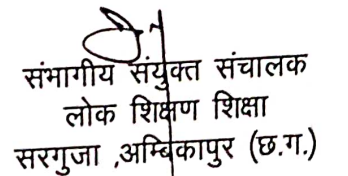 संभागीय संयुक्त संचालक
लोक शिक्षण शिक्षा
सरगुजा ,अम्बिकापुर (छ.ग.)